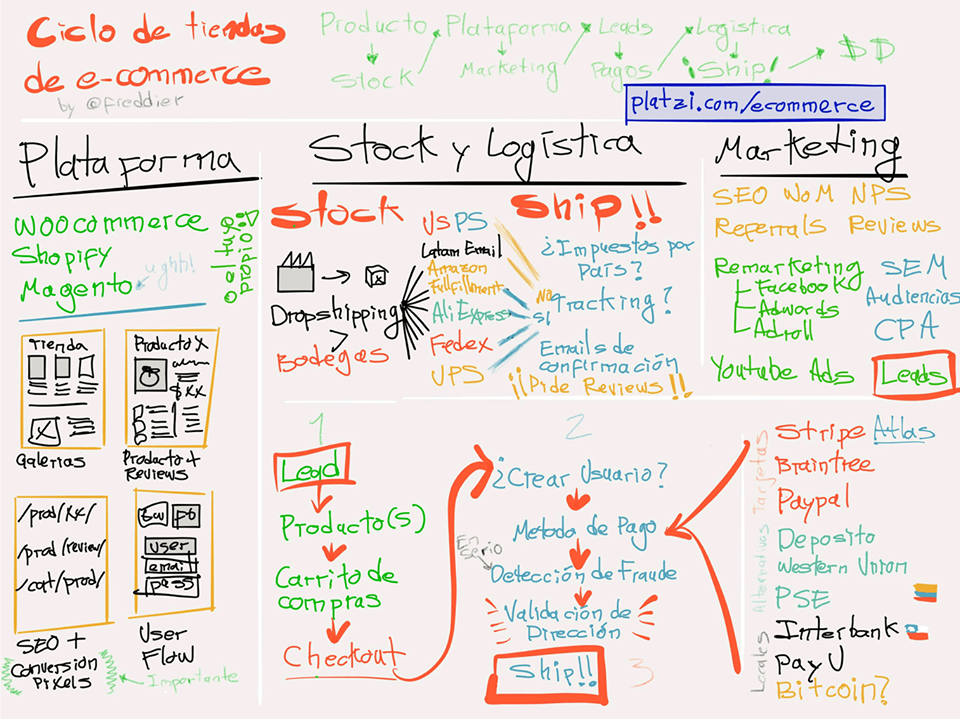 Ciclo de tiendas
de e-commerce
by @freddier
Producto Plataforma Leads Logística
Stock Marketing Pagos ¡Ship! $ D
platzi.com/ecommerce
Plataforma
woocommerce
Shopify
Magento ughh!
o el tuyo
propio :D
Tienda
Galerias
Producto X
$XX
Producto +
Reviews
/prod/xx/
/prod/review/
/cart/prod/
SEO +
Conversión
Pixels
Importante
user
email
pass
User
Flow
Stock y Logística
Stock
Dropshipping
Bodegas
USPS
Latam Email
Amazon
Fullfillment
AliExpress
Fedex
UPS
Ship!!
¿Impuestos por
País?
No
Sí
Tracking?
Emails de
confirmación
¡¡Pide Reviews!!
Marketing
SEO WoM NPS
Referrals Reviews
Remarketing
Facebook
Adwords
Adroll
SEM
Audiencias
CPA
Youtube Ads
Leads
1
Lead
Producto(s)
Carrito de
compras
Checkout
2
¿Crear Usuario?
Metodo de Pago
En
serio
Detección de Fraude
Validación de
Dirección
Ship!!
3
Tarjetas
Stripe Atlas
Braintree
Paypal
Alternativos
Deposito
Western Union
PSE
Locales
Interbank
PayU
Bitcoin?